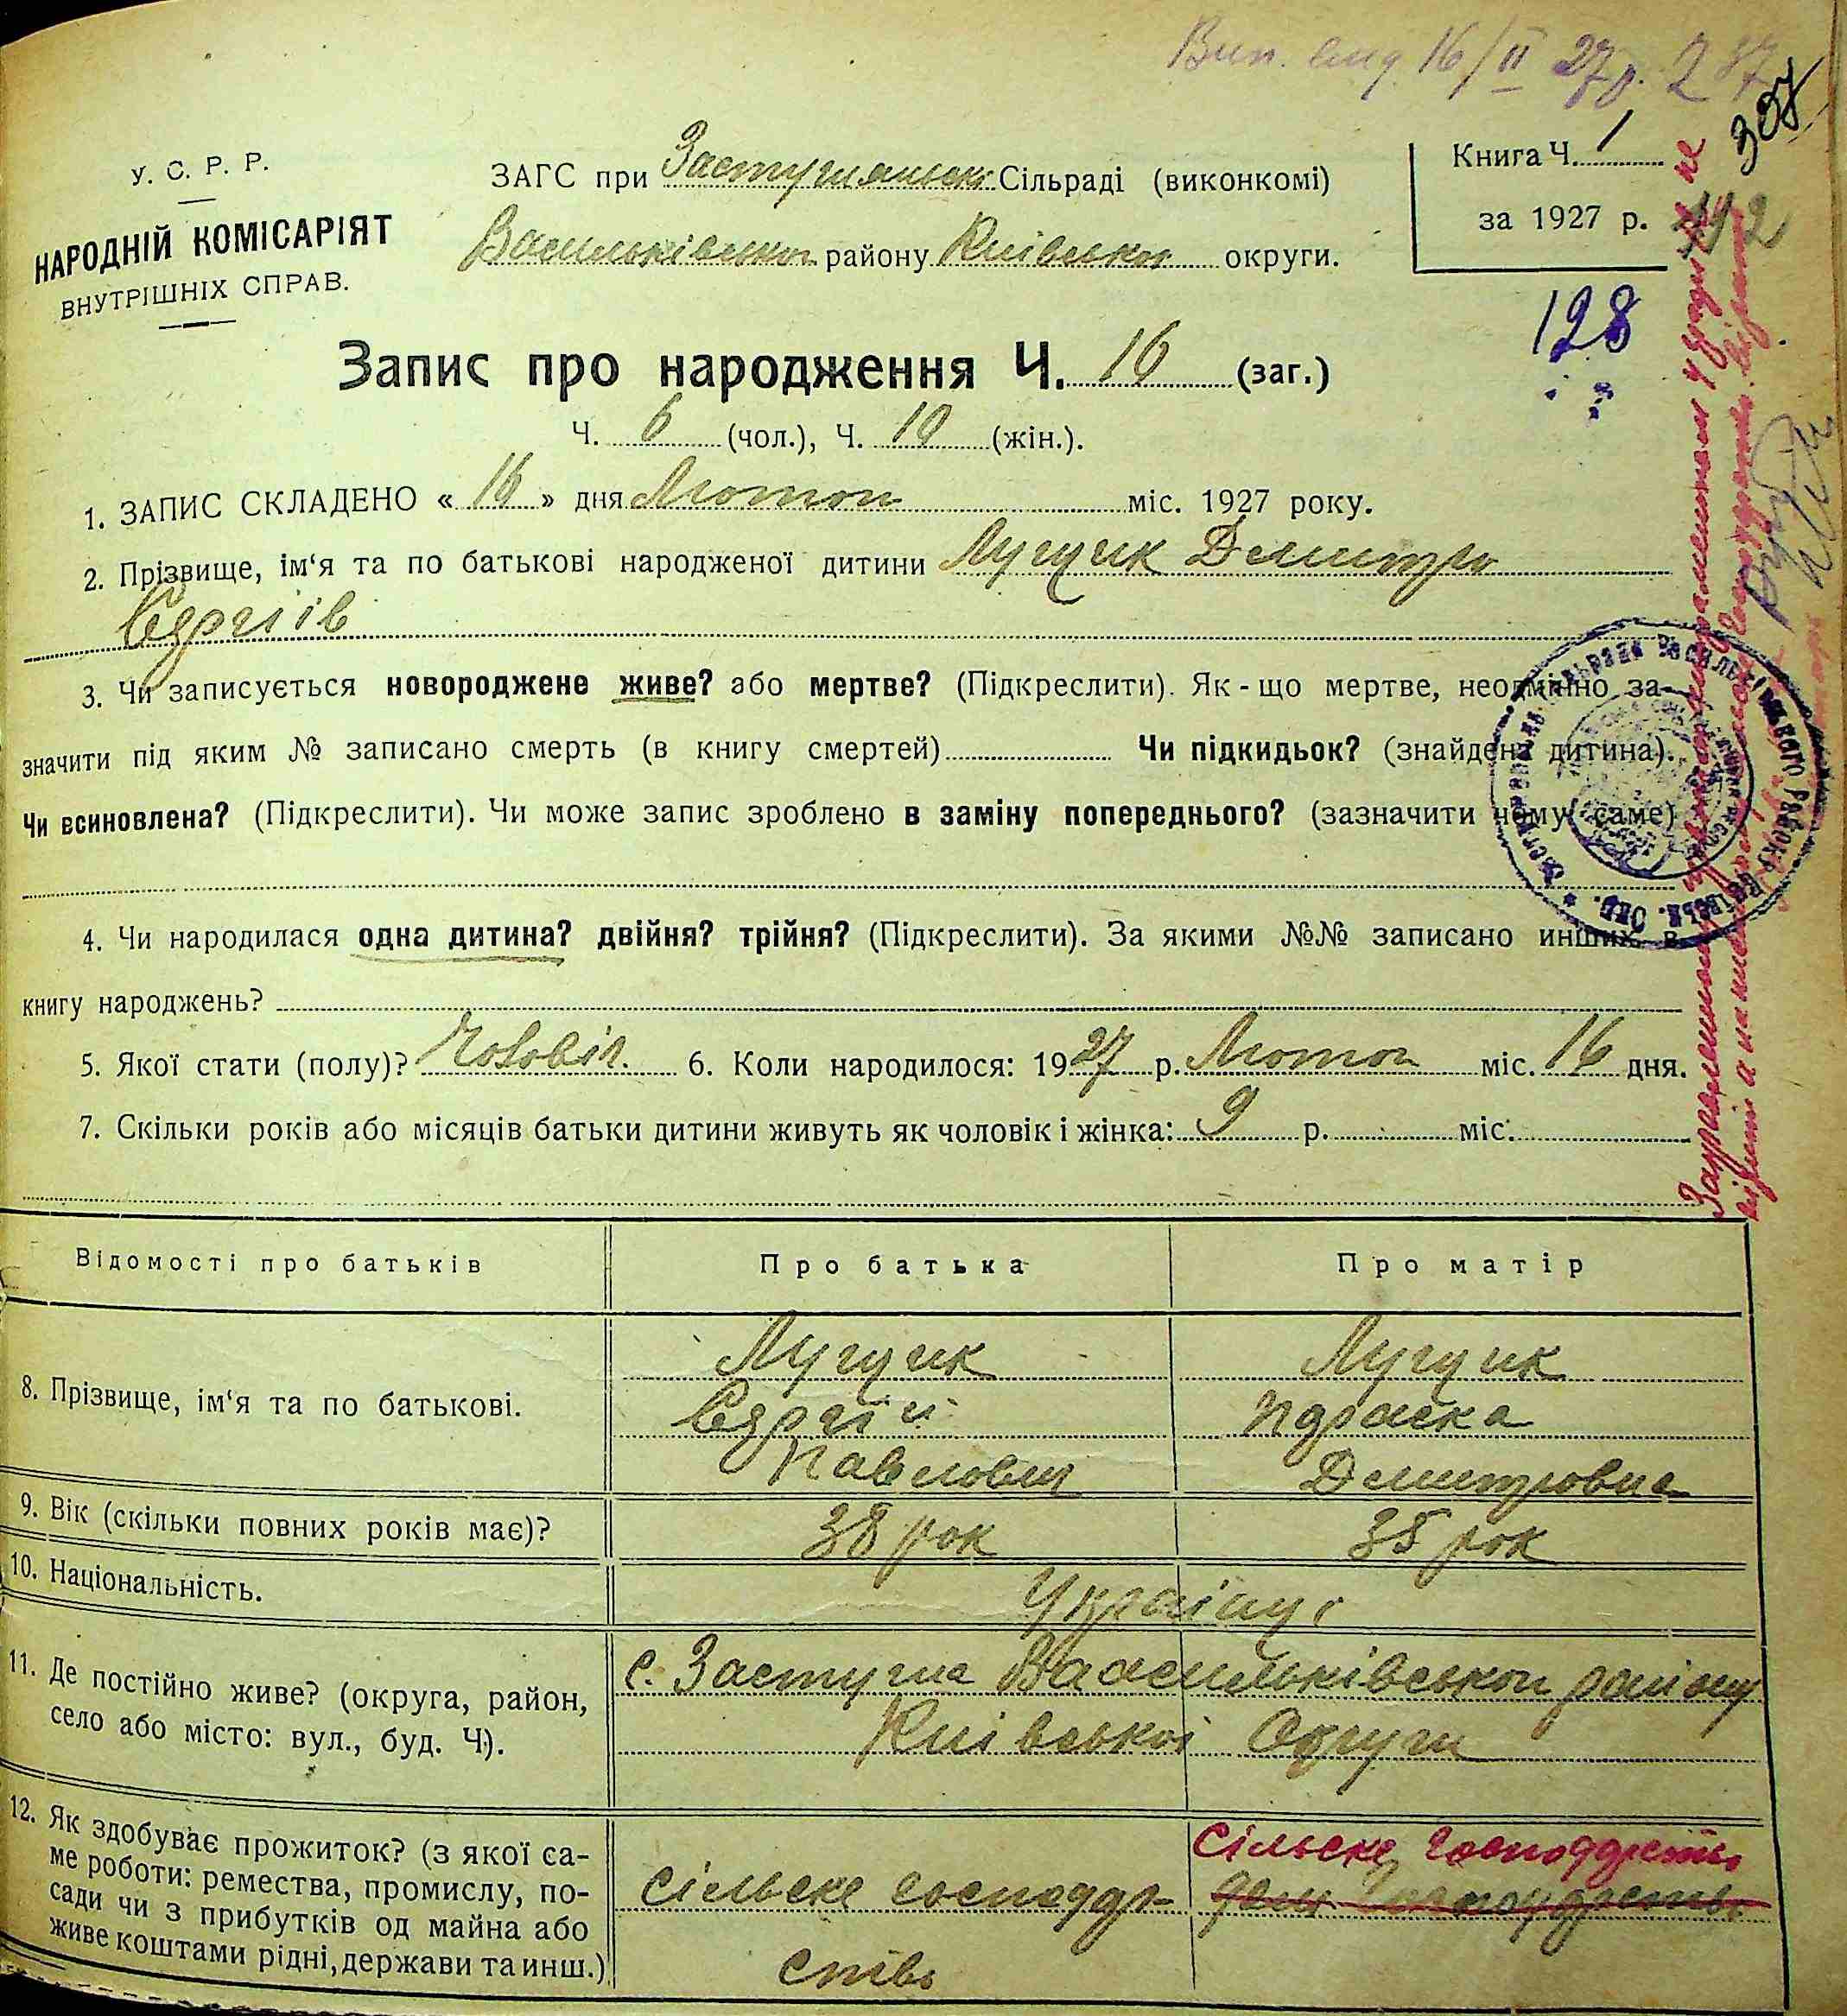 Вип. вид. 16/II 27р.
307
У. С. Р. Р.
НАРОДНІЙ КОМІСАРІЯТ
ВНУТРІШНІХ СПРАВ.
ЗАГС при Застугнянські Сільраді (виконкомі)
Васильківськои району Київськои округи.
Книга Ч. 1
за 1927 р.
128
Запис про народження Ч. 16 (заг.)
Ч. 6 (чол.), Ч. 10 (жін.).
1. ЗАПИС СКЛАДЕНО « 16 » дня Лютого міс. 1927 року.
2. Прізвище, ім‘я та по батькові народженої дитини Лущик Демитро
Сергіів
3. Чи записується новороджене живе? або мертве? (Підкреслити). Як-що мертве, неодмінно за-
значити під яким № записано смерть (в книгу смертей) Чи підкидьок? (знайдена дитина).
Чи всиновлена? (Підкреслити). Чи може запис зроблено в заміну попереднього? (зазначити чому саме)
4. Чи народилася одна дитина? двійня? трійня? (Підкреслити). За якими №№ записано инших в
книгу народжень?
5. Якої стати (полу)? Чоловіч. 6. Коли народилося: 1927 р. Лютого міс. 16 дня.
7. Скільки років або місяців батьки дитини живуть як чоловік і жінка: 9 р. міс.
Відомості про батьків Про батька Про матір
8. Прізвище, ім‘я та по батькові.
Лущик
Сергій
Павлович
Лущик
Демитровна
9. Вік (скільки повних років має)? 38 рок 35 рок
10. Національність. Українці
11. Де постійно живе? (округа, район,
село або місто: вул., буд. Ч).
с. Застугна Васильківськои району
Київської Округи
12. Як здобуває прожиток? (з якої са-
ме роботи: ремества, промислу, по-
сади чи з прибутків од майна або
живе коштами рідні, держави та инш.)
сільске господар
ство
Сільске господарство